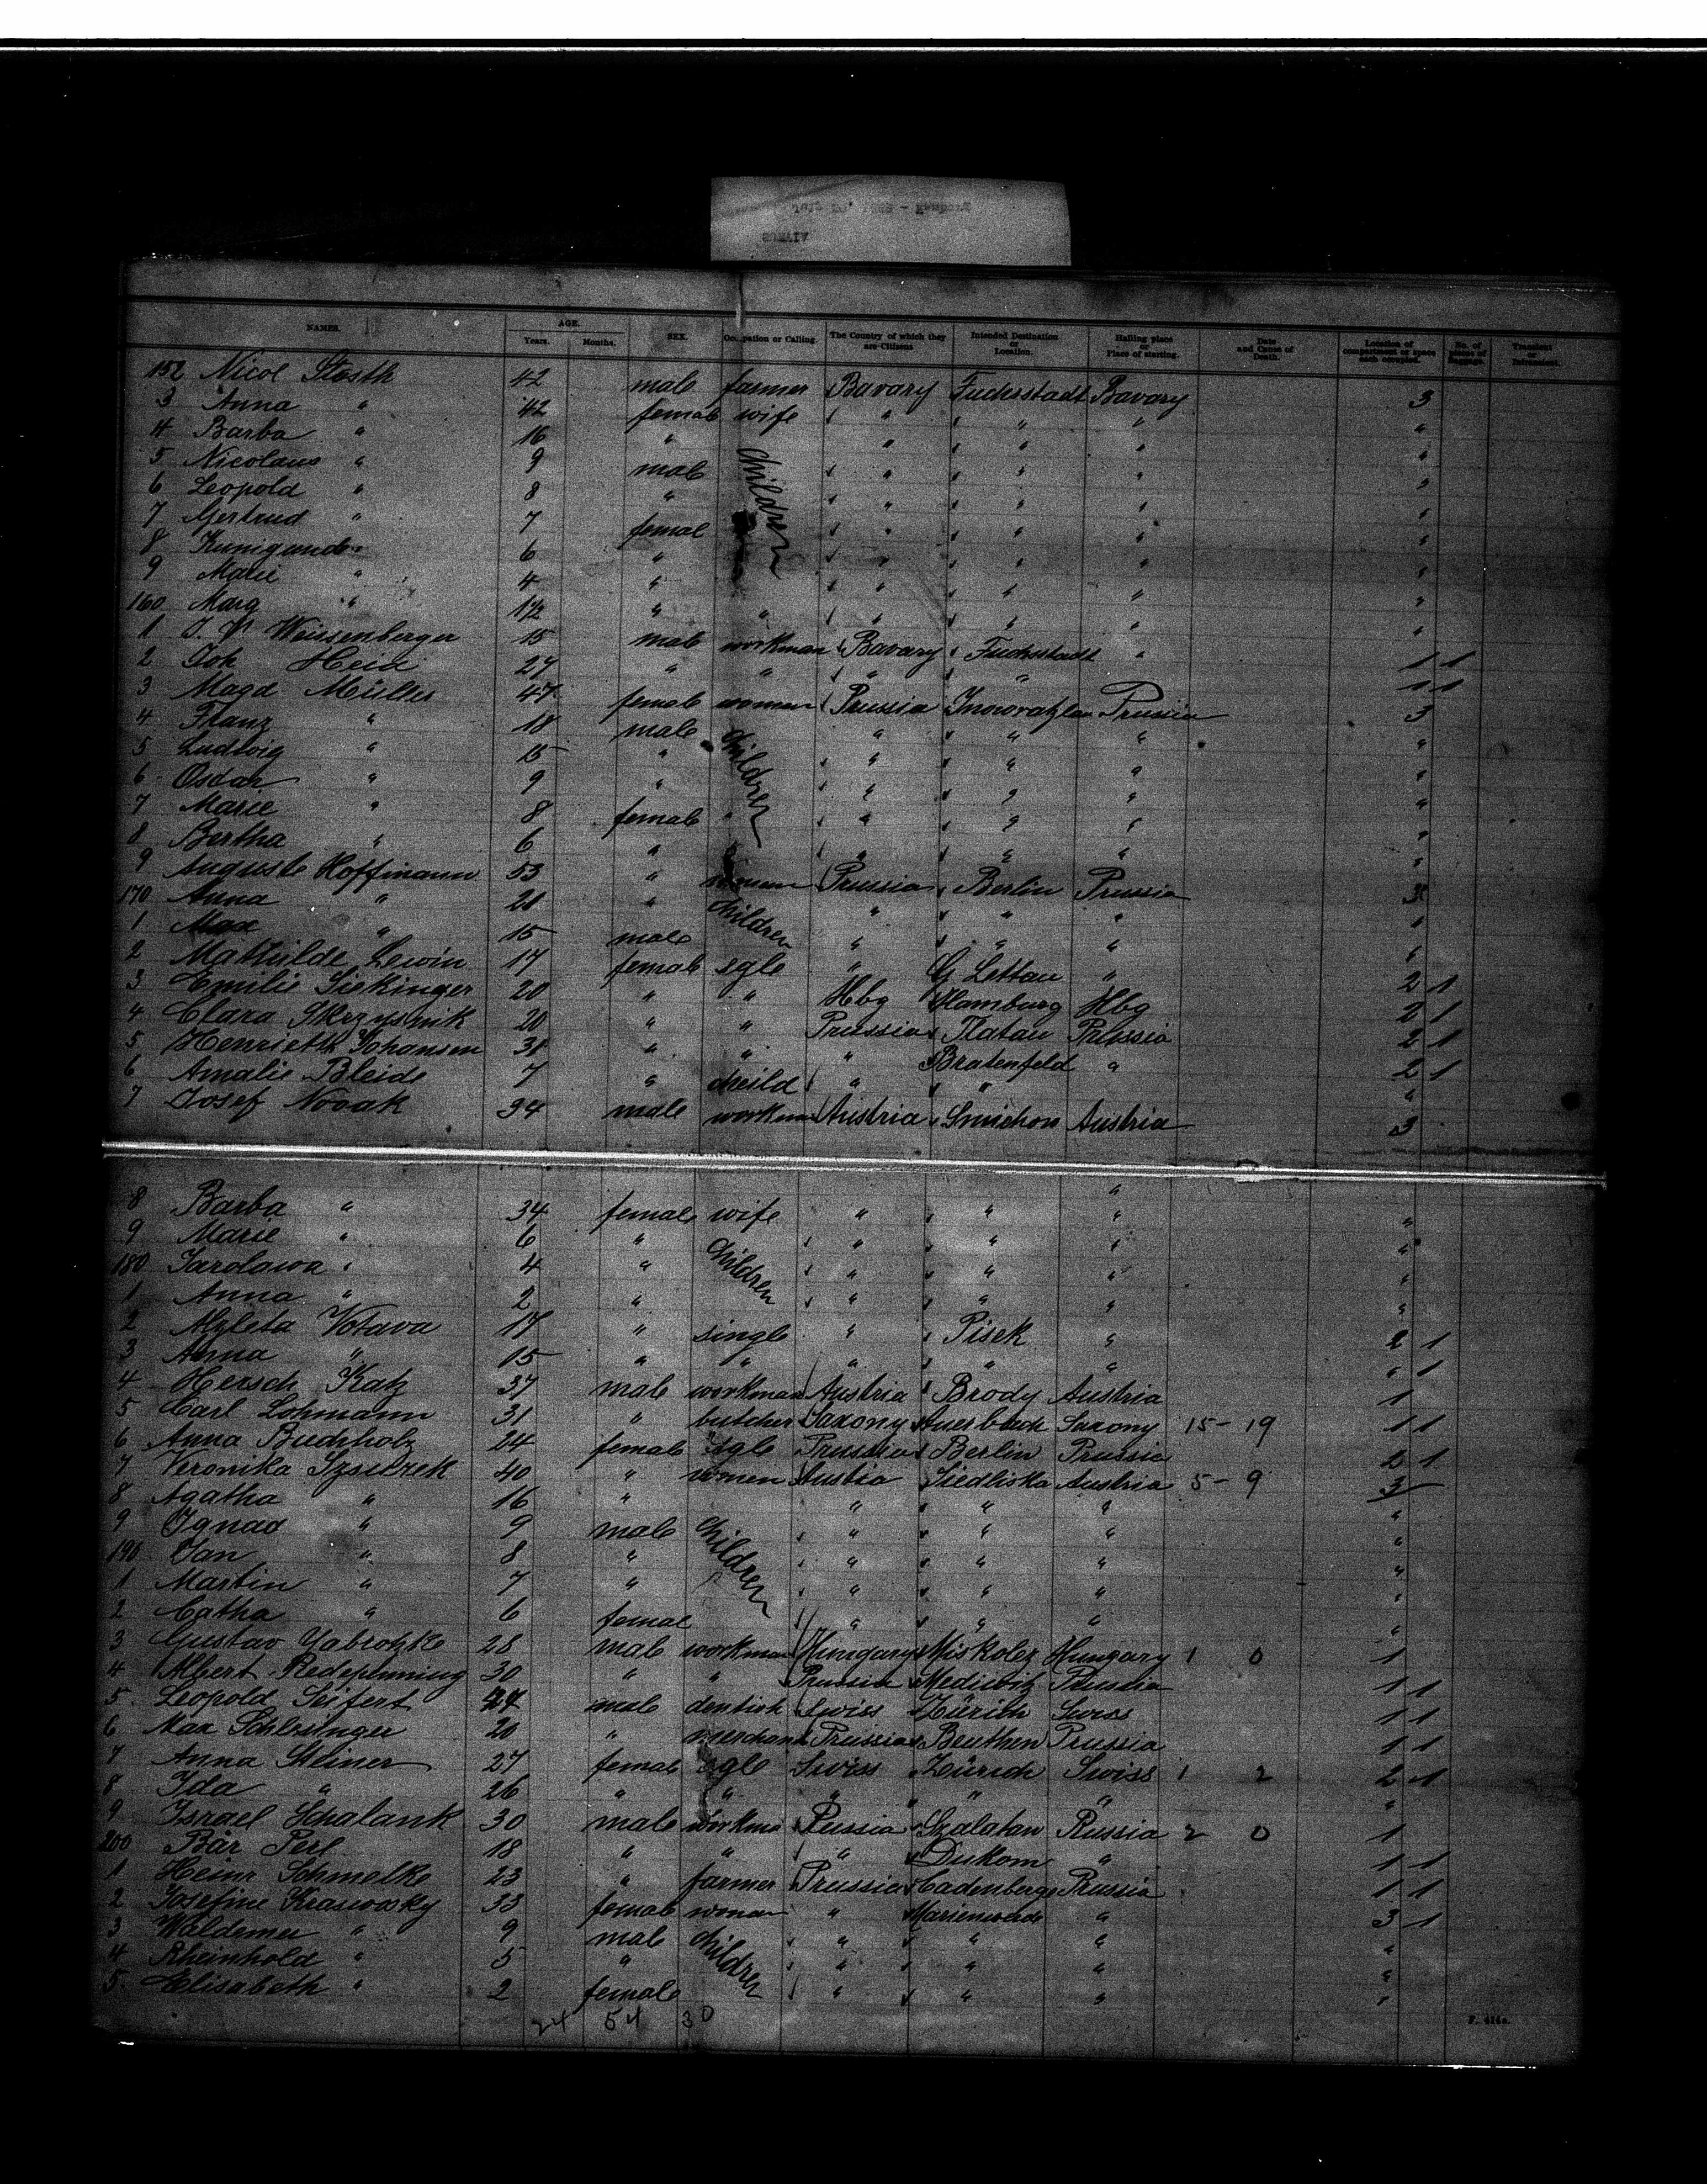 NAMES. AGE. Years. Months. SEX. Occupation or Calling. The Country of which they are Citizens Intended Destination or Location. Halling place or Place of starting. Date and Cause of Death. Location of compartment or space each occupied. No. of pieces of Baggage. Transient or
152 Nicol 42 male farmer Bavary Fuchsstadt Bavary 3
3 Anna " 42 female wife " " " "
4 Barba " 16 " children " " " "
5 Nicolaus " 9 male " " " "
6 Leopold " 8 " " " " "
7 Gertrud " 7 female " " " "
8 Kunigunde " 6 " " " " "
9 Marie " 4 " " " " "
160 Marg " 1½ " " " " " "
1 Weissenberger 15 male workman Bavary Fuchsstadt " 1 1
2 Joh Heid 27 " " " " 1 1
3 Magd. Müller 47 female women Prussia Prussia 3
4 Franz " 18 male children " " " "
5 Ludwig " 15 " " " " "
6 Oscar " 9 " " " " "
7 Marie " 8 female " " " "
8 Bertha " 6 " " " " "
9 Auguste Hoffmann 53 " women Prussia Berlin Prussia 3
170 Anna " 21 " children " " " "
1 Max " 15 male " " " "
2 Mathilde Lewin 17 female sgle " G Lettau " 2 1
3 Emilie Siekinger 20 " " Hbg Hamburg Hbg 2 1
4 Clara 20 " " Prussia Flatau Prussia 2 1
5 Henriette Johansen 31 " " " Bratenfeld " 2 1
6 Amalie Bleide 7 " cheild " " "
7 Josef Novak 34 male workman Austria Smichow Austria 3
8 Barba " 34 female wife " " " "
9 Marie " 6 " children " " " "
180 Jarolawa " 4 " " " " "
1 Anna " 2 " " " " "
2 Votava 17 " single " Pisek " 2 1
3 Anna " 15 " " " " " " 1
4 Hersch Katz 37 male workman Austria Brody Austria 1
5 Carl Lohmann 31 " butcher Saxony Auerbach Saxony 15 - 19 1 1
6 Anna Buchholz 24 female sgle Prussia Berlin Prussia 2 1
7 Veronika 40 " women Austia Siedliska Austria 5 - 9 3
8 Agatha " 16 " " " " "
9 Ignad " 9 male children " " " "
190 Jan " 8 " " " " "
1 Martin " 7 " " " " "
2 Catha " 6 female " " " "
3 Gustav 28 male workman Hungary Miskolcz Hungary 1 0 1
4 Albert Redepenning 30 " " Prussia Prussia 1 1
5 Leopold Seifert 24 male dentist Swiss Zürich Swiss 1 1
6 Max Schlesinger 20 " merchant Prussia Beuthen Prussia 1 1
7 Anna Steiner 27 female sgle Swiss Zürich Swiss 1 2 2 1
8 Ida " 26 " " " " " "
9 Israel Schalank 30 male workma Russia Russia 2 0 1
200 Bär Perl 18 " " " Dukom " 1 1
1 Heinr Schmelke 23 " farmer Prussia Cadenberge Prussia 1 1
2 Josefine Krasowsky 33 female woman " Marienwerde " 3 1
3 Waldemer " 9 male children " " " "
4 Rheinhold " 5 " " " " "
5 Elisabeth " 2 female " " " "
24 54 30